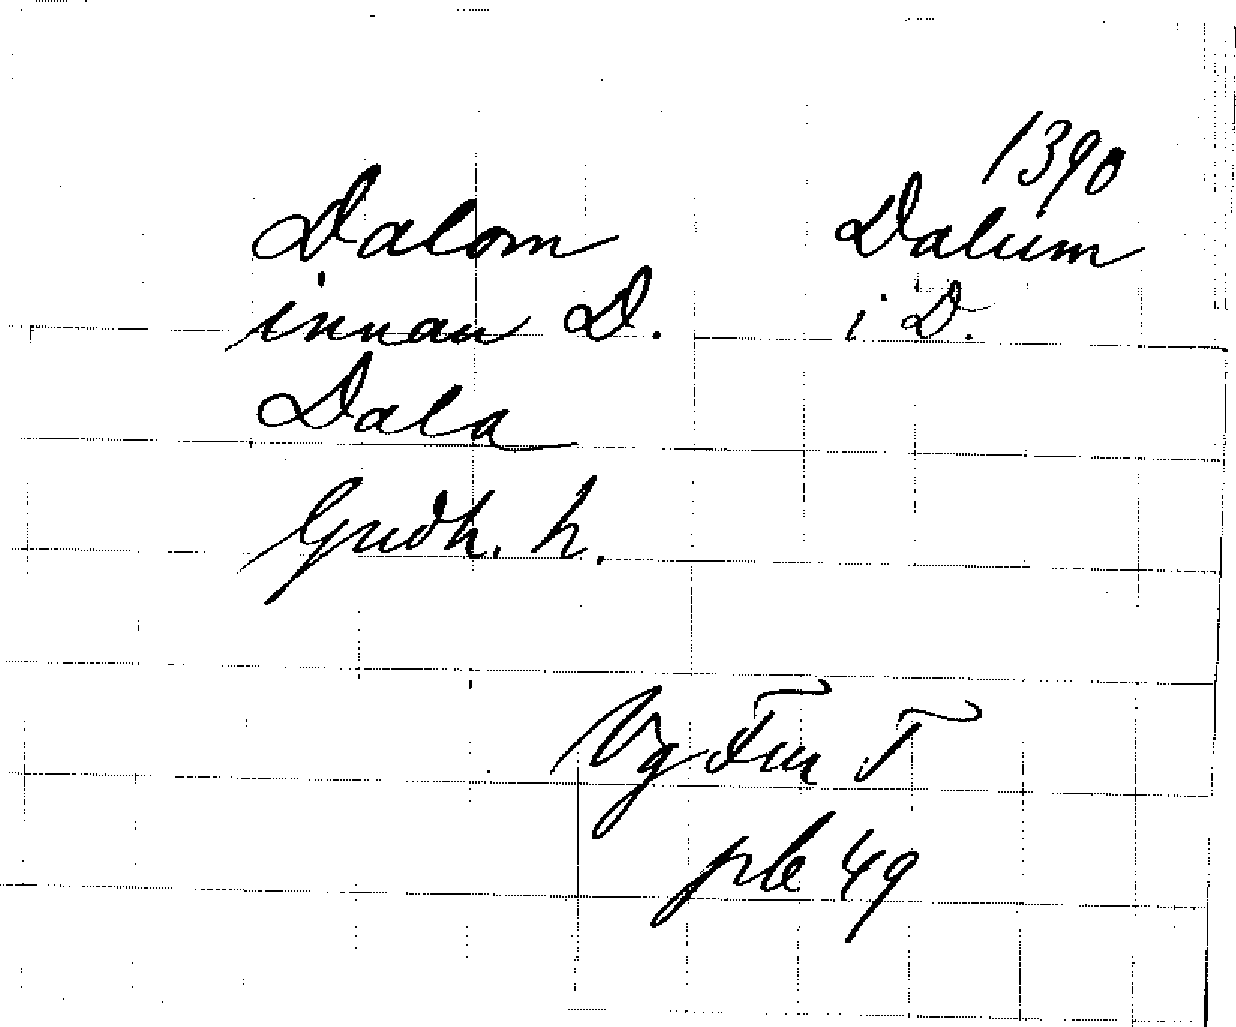 1390
Dalom Dalum
innan D. i D.
Dala
Gudh. h.
Vg Fm T
pb 49